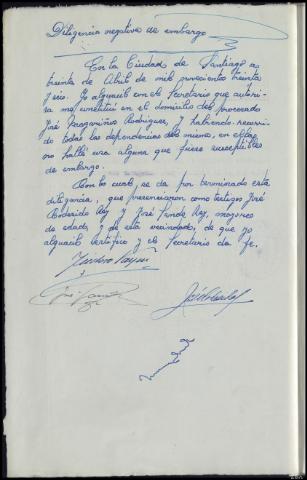 Diligencia negativa de embargo
En la Ciudad de Santiago a
treinta de Abril de mil novecientos treinta
y seis. Yo alguacil con el Secretario que autori-
za me constituí en el domicilio del procesado
José Magariños Rodriguez, y habiendo recorri-
do todas las dependencias del mismo, en el que
no hallé cosa alguna que fuese susceptible
de embargo.
Con lo cual, se da por terminada esta
diligencia, que presenciaron como testigos José
Rey y José Rey, mayores
de edad, y de esta vecindad, de que yo
alguacil certifico y el Secretario da fe.